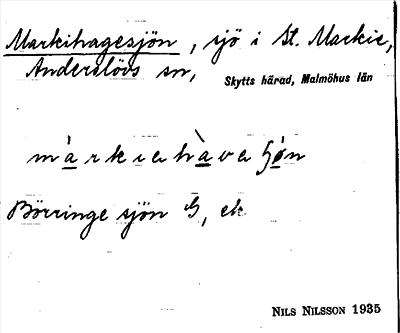 Markihagesjön, sjö i St. Markie,
Anderslövs sn,
Skytts härad, Malmöhus län
màrkiehàve sjøn
Börringe sjön G, ek
NILS NILSSON 1935